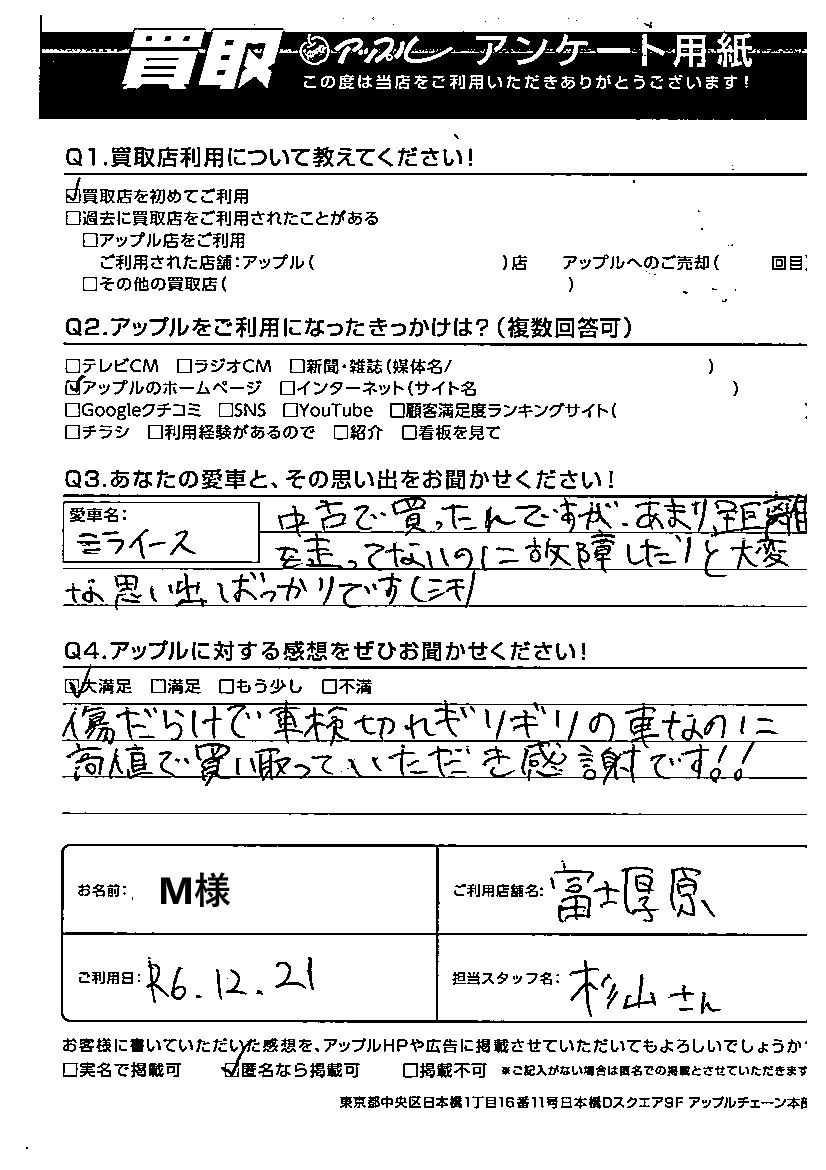 買取 アップル アンケート用紙
この度は当店をご利用いただきありがとうございます!
Q1.買取店利用について教えてください!
☑買取店を初めてご利用
□過去に買取店をご利用されたことがある
□アップル店をご利用
ご利用された店舗:アップル( )店 アップルへのご売却( 回目)
□その他の買取店( )
Q2.アップルをご利用になったきっかけは?(複数回答可)
□テレビCM □ラジオCM □新聞・雑誌(媒体名/ )
☑アップルのホームページ □インターネット(サイト名 )
□Googleクチコミ □SNS □YouTube □顧客満足度ランキングサイト( )
□チラシ □利用経験があるので □紹介 □看板を見て
Q3.あなたの愛車と、その思い出をお聞かせください!
愛車名:
ミライース
中古で買ったんですが、あまり距離
を走ってないのに故障したりと大変
な思い出ばっかりです(汗)
Q4.アップルに対する感想をぜひお聞かせください!
☑大満足 □満足 □もう少し □不満
傷だらけで車検切れギリギリの車なのに
高値で買い取っていただき感謝です!!
お名前: M様
ご利用店舗名: 富士厚原
ご利用日: R6.12.21
担当スタッフ名: 杉山さん
お客様に書いていただいた感想を、アップルHPや広告に掲載させていただいてもよろしいでしょうか?
□実名で掲載可 ☑匿名なら掲載可 □掲載不可 ※ご記入がない場合は匿名での掲載とさせていただきます
東京都中央区日本橋1丁目16番11号日本橋Dスクエア9F アップルチェーン本部